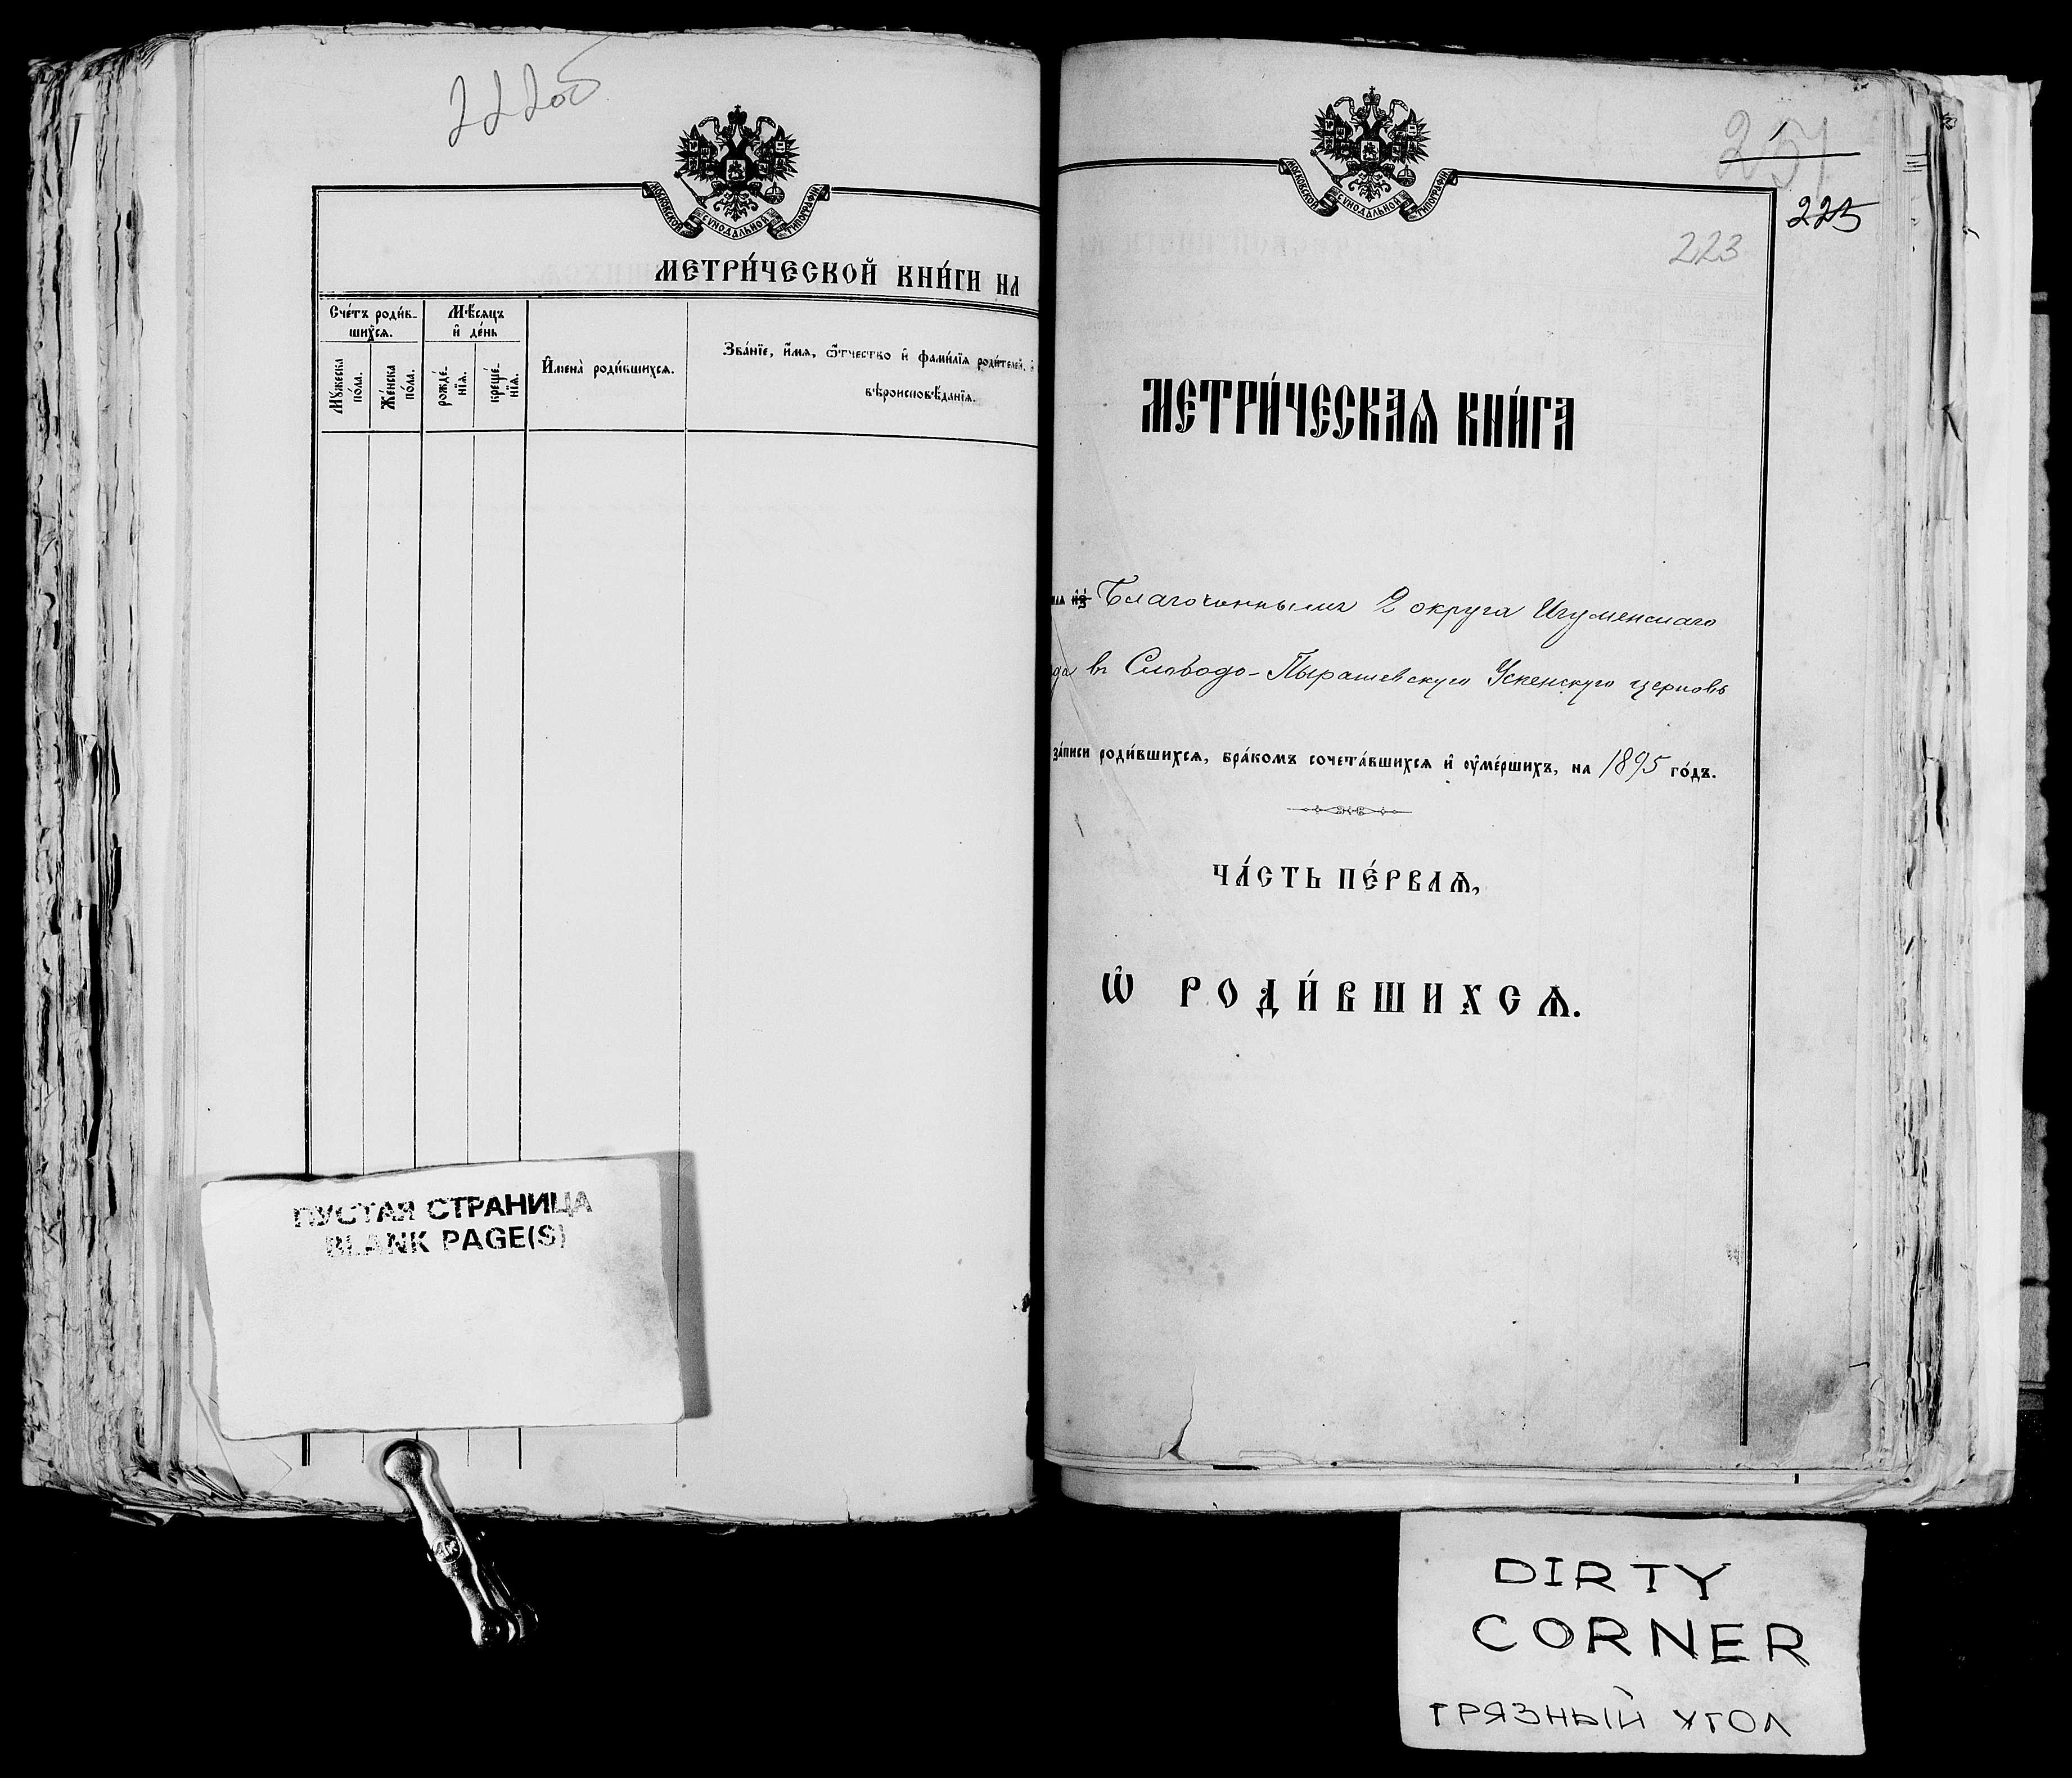 222об
МОСКОВСКОЙ СѴНОДАЛЬНОЙ ТИПОГРАФІИ
МЕТРИ́ЧЕСКОЙ КНИ́ГИ НА
Сче́тъ роди́в-
шихся.
Мѣсяцъ
и҆ де́нь
Мꙋжеска
по́ла.
Же́нска
по́ла.
рожде́-
нїя.
креще́-
нїя.
И҆мена̀ роди́вшихся.
Зва́нїе, и҆́мя, ѻ҆́тчество и҆ фами́лїя роди́телей,
вѣроисповѣ́данїя.
ПУСТАЯ СТРАНИЦА
BLANK PAGE(S)
МОСКОВСКОЙ СѴНОДАЛЬНОЙ ТИПОГРАФІИ
251
225
223
МЕТРИ́ЧЕСКАѦ КНИ́ГА
Благочиннымъ 2 округа Игуменскаго
въ Слободо-Пырашевскую Успенскую церковь
за́писи роди́вшихся, бра́комъ сочета́вшихся и҆ ᲂу҆ме́ршихъ, на 1895 го́дъ.
ЧА́СТЬ ПЕ́РВАѦ,
Ѡ҆ РОДИ́ВШИХСѦ.
DIRTY
CORNER
ГРЯЗНЫЙ УГОЛ